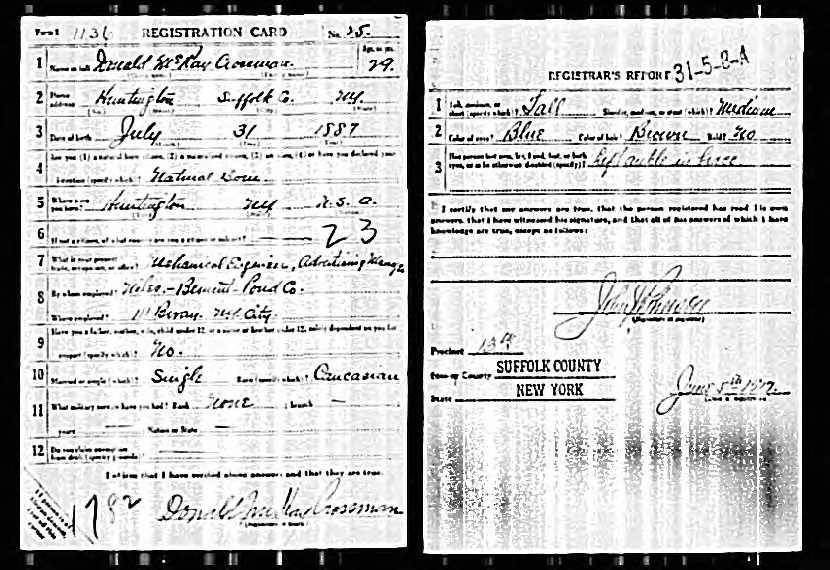 Form 1 1136 REGISTRATION CARD No. 25.
1 Name in full Donald McKay Crossman. Age, in yrs. 29.
2 Home address Huntington Suffolk Co. NY.
3 Date of birth July 31 1887
4 Are you (1) a natural born citizen, (2) a naturalized citizen, (3) an alien, (4) or have you declared your intention (specify which)? Natural Born
5 Where were you born? Huntington NY U.S.A.
6 If not a citizen, of what country are you a citizen or subject? 23
7 What is your present trade, occupation, or office? Mechanical Engineer, Advertising
8 By whom employed? Niles-Bement-Pond Co.
Where employed? 111 Broad. NY City.
9 Have you a father, mother, wife, child under 12, or a sister or brother under 12, solely dependent on you for support (specify which)?
No.
10 Married or single (which)? Single Race (specify which)? Caucasian
11 What military service have you had? Rank none branch —
years — Nation or State —
12 Do you claim exemption from draft (specify grounds)? —
I affirm that I have verified above answers and that they are true.
1782 Donald MacKay Crossman
REGISTRAR'S REPORT 31-5-8-A
1 Tall, medium, or short (specify which)? Tall Slender, medium, or stout (which)? Medium
2 Color of eyes? Blue Color of hair? Brown Bald? No
3 Has person lost arm, leg, hand, foot, or both eyes, or is he otherwise disabled (specify)? left ankle
I certify that my answers are true, that the person registered has read his own answers, that I have witnessed his signature, and that all of his answers of which I have knowledge are true, except as follows:
(Signature of registrar)
Precinct 13th
City or County SUFFOLK COUNTY
State NEW YORK June 5th 1917